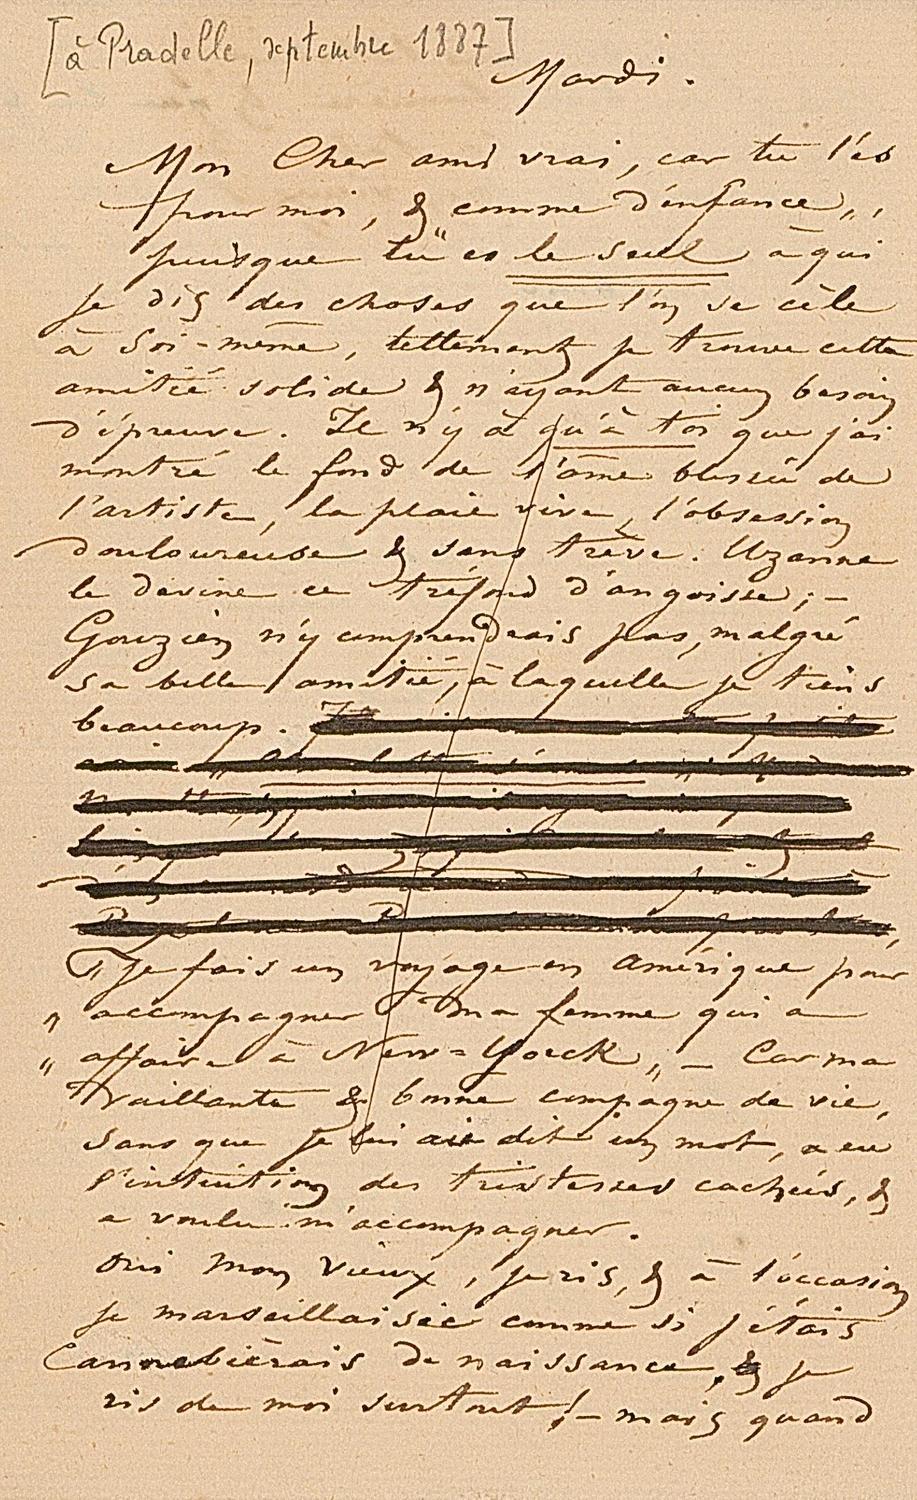 [à Pradelle, septembre 1887]
Mardi.
Mon Cher ami vrai, car tu l'es
pour moi, & comme d'enfance,,,
puisque tu" es le seul à qui
je dis des choses que l'on se cèle
à soi-même, tellement je trouve cette
amitié solide & n'ayant aucun besoin
d'épreuve. Il n'y a qu'à toi que j'ai
montré le fond de l'âme de
l'artiste, la plaie vive, l'obsession
douloureuse & sans trève. Uzanne
le devine ce tréfond d'angoisse; –
Gouzien n'y comprendrais pas, malgré
sa belle amitié, à laquelle je tiens
beaucoup.
"Je fais un voyage en Amérique pour
" accompagner ma femme qui a
" affaire à New=Yorck,, – Car ma
vaillante & bonne compagne de vie,
sans que je lui aie dit un mot, a eu
l'intuition des tristesses cachées, &
a voulu m'accompagner.
Oui mon vieux, je ris, & à l'occasion
je marseillaise comme si j'étais
Cannebièrais de naissance, & je
ris de moi surtout! – mais quand